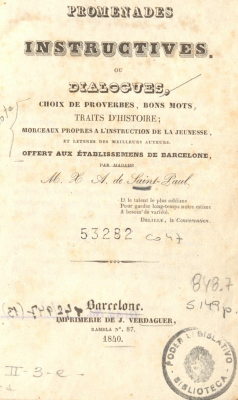 PROMENADES
INSTRUCTIVES.
OU
DIALOGUES,
CHOIX DE PROVERBES, BONS MOTS,
TRAITS D'HISTOIRE;
MORCEAUX PROPRES A L'INSTRUCTION DE LA JEUNESSE,
ET LETTRES DES MEILLEURS AUTEURS
OFFERT AUX ÉTABLISSEMENS DE BARCELONE,
PAR MADAME
M. X A. de Saint-Paul.
Et le talent le plus sublime
Pour garder long-temps notre estime
A besoin de variété.
DELILLE, la Conversation.
53282
848.7
S149p
Barcelone.
IMPRIMERIE DE J. VERDAGUER,
RAMBLA Nº. 87.
1840.
II-3-e-
BIBLIOTECA